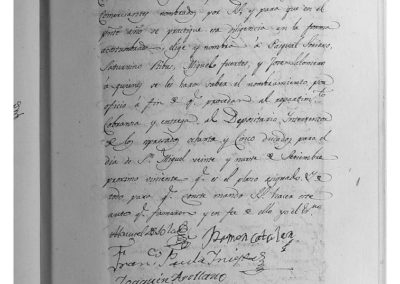 Comerciantes nombrados por Dⁿ y para que en el
preste año se practique esta diligencia en la forma
acostumbrada, elige y nombra à Pasqual
Saturnino Ribas, Miguel Fuertes, y
à quienes se les hara saber el nombramiento por
oficio à fin de qᵉ procedan al repartimᵗᵒ
Cobranza y entrega al Depositario Interventor
de los expresados ochenta y Cinco ducados para el
dia de Sⁿ Miguel veinte y nueve de Setiembre
proximo viniente qᵉ es el plazo asignado. Y de
todo para qᵉ conste mando Sᵃ hacer este
auto qᵉ firmaron y en fe de ello yo el Esⁿᵒ
Ramon Catalan
Franᶜᵒ Paula
Joaquin Arellano